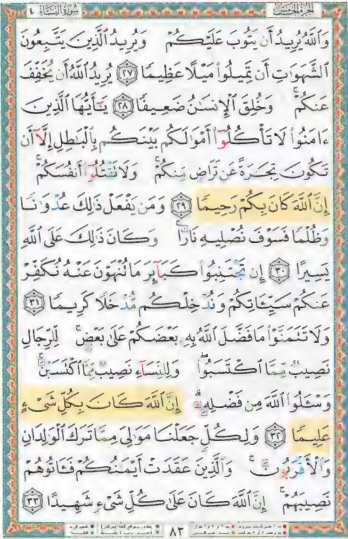 سُورَةُ النِّسَاءِ ٤
وَاللَّهُ يُرِيدُ أَن يَتُوبَ عَلَيْكُمْ وَيُرِيدُ الَّذِينَ يَتَّبِعُونَ
الشَّهَوَاتِ أَن تَمِيلُوا مَيْلًا عَظِيمًا ٢٧ يُرِيدُ اللَّهُ أَن يُخَفِّفَ
عَنكُمْ وَخُلِقَ الْإِنسَانُ ضَعِيفًا ٢٨ يَا أَيُّهَا الَّذِينَ
ءَامَنُوا لَا تَأْكُلُوا أَمْوَالَكُم بَيْنَكُم بِالْبَاطِلِ إِلَّا أَن
تَكُونَ تِجَارَةً عَن تَرَاضٍ مِّنكُمْ وَلَا تَقْتُلُوا أَنفُسَكُمْ
إِنَّ اللَّهَ كَانَ بِكُمْ رَحِيمًا ٢٩ وَمَن يَفْعَلْ ذَٰلِكَ عُدْوَانًا
وَظُلْمًا فَسَوْفَ نُصْلِيهِ نَارًا وَكَانَ ذَٰلِكَ عَلَى اللَّهِ
يَسِيرًا ٣٠ إِن تَجْتَنِبُوا كَبَائِرَ مَا تُنْهَوْنَ عَنْهُ نُكَفِّرْ
عَنكُمْ سَيِّئَاتِكُمْ وَنُدْخِلْكُم مُّدْخَلًا كَرِيمًا ٣١
وَلَا تَتَمَنَّوْا مَا فَضَّلَ اللَّهُ بِهِ بَعْضَكُمْ عَلَى بَعْضٍ لِّلرِّجَالِ
نَصِيبٌ مِّمَّا اكْتَسَبُوا وَلِلنِّسَاءِ نَصِيبٌ مِّمَّا اكْتَسَبْنَ
وَسْـَٔلُوا اللَّهَ مِن فَضْلِهِ إِنَّ اللَّهَ كَانَ بِكُلِّ شَيْءٍ
عَلِيمًا ٣٢ وَلِكُلٍّ جَعَلْنَا مَوَالِيَ مِمَّا تَرَكَ الْوَالِدَانِ
وَالْأَقْرَبُونَ وَالَّذِينَ عَقَدَتْ أَيْمَانُكُمْ فَـَٔاتُوهُمْ
نَصِيبَهُمْ إِنَّ اللَّهَ كَانَ عَلَى كُلِّ شَيْءٍ شَهِيدًا ٣٣
٨٣